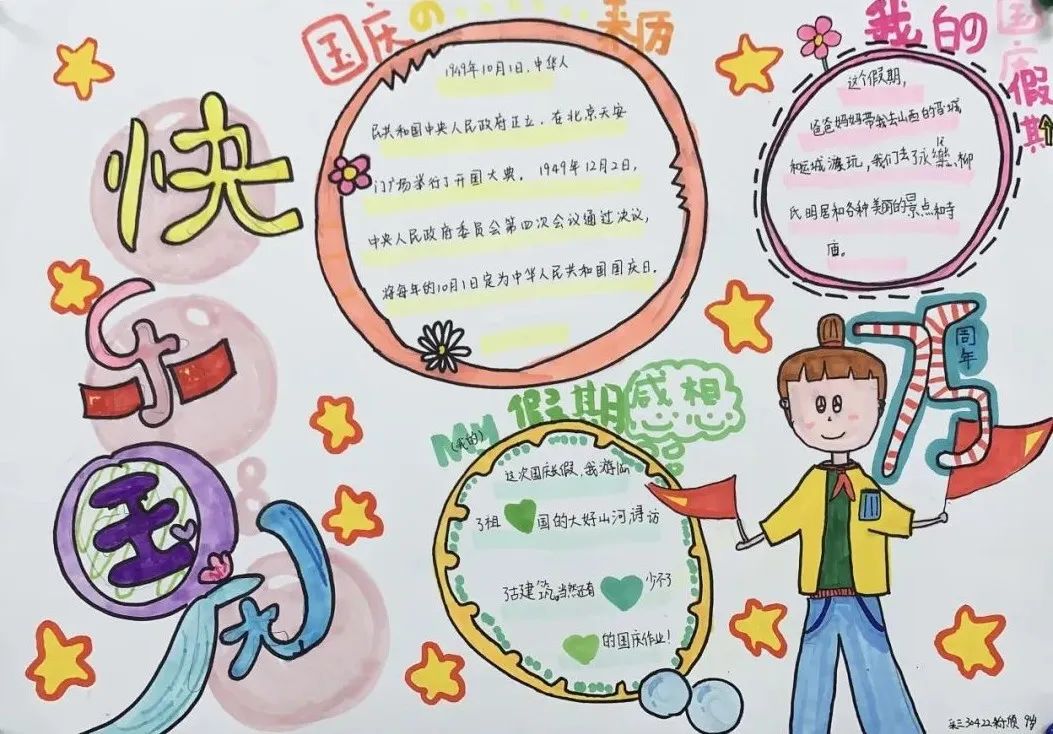 快
乐
国
庆
国庆の来历
1949年10月1日,中华人
民共和国中央人民政府正立,在北京天安
门广场举行了开国大典。1949年12月2日,
中央人民政府委员会第四次会议通过决议,
将每年的10月1日定为中华人民共和国国庆日。
我的国庆假期
这个假期,
爸爸妈妈带我去山西的晋城
和运城游玩,我们去了永乐、柳
氏明居和各种美丽的景点和寺
庙。
75
周年
My假期感想
(我的)
这次国庆长假,我游山
了祖国的大好山河,寻访
了古建筑。当然还有少不了
的国庆作业!
9岁